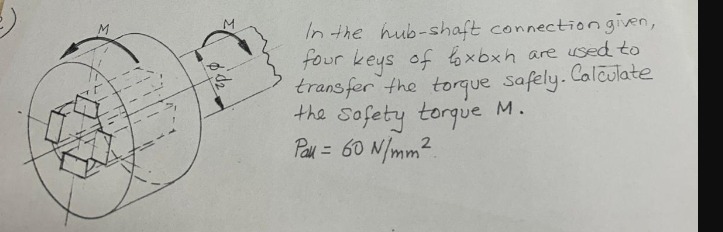 M
M
ϕd₂
In the hub-shaft connection given,
four keys of l₀xbxh are used to
transfer the torque safely. Calculate
the safety torque M.
Pall = 60 N/mm²